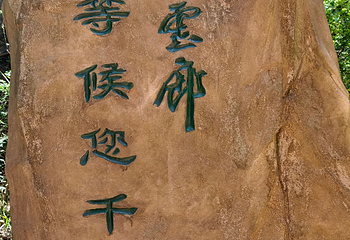 雲郎
等候您千